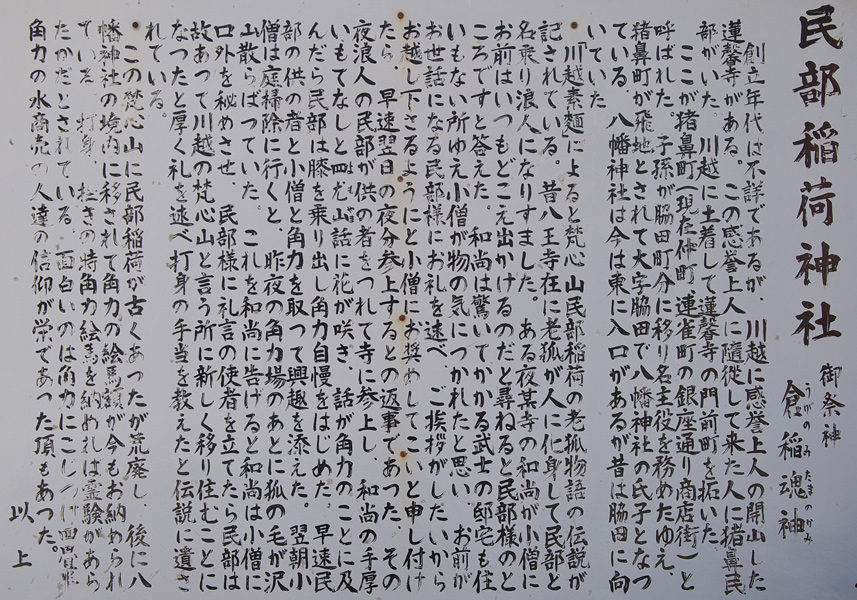 民部稲荷神社
御祭神
倉稲魂神
うがのみたまのかみ
創立年代は不詳であるが、川越に感誉上人の開山した
蓮馨寺がある。この感誉上人に随従して来た人に猪鼻民
部がいた。川越に土着して蓮馨寺の門前町を拓いた
ここが猪鼻町(現在仲町、連雀町の銀座通り商店街)と
呼ばれた。子孫が脇田町分に移り名主役を務めたゆえ、
猪鼻町が飛地とされて大字脇田で八幡神社の氏子となつ
ている。八幡神社は今は東に入口があるが昔は脇田に向
いていた
「川越素麺」によると梵心山民部稲荷の老狐物語の伝説が
記されている。昔八王寺在に老狐が人に化身して民部と
名乗り浪人になりすました。ある夜某寺の和尚が小僧に
お前はいつもどこえ出かけるのだと尋ねると民部様のと
ころですと答えた。和尚は驚いてかかる武士の邸宅も住
いもない所ゆえ小僧が物の気につかれたと思い、お前が
お世話になる民部様にお礼を速べ、ご挨拶がしたいから
お越し下さるようにと小僧にお奨めしてこいと申し付け
たら、早速翌日の夜分参上するとの返事であった。その
夜浪人の民部が供の者をつれて寺に参上し、和尚の手厚
いもてなしと四方山話に花が咲ぎ、話が角力のことに及
んだら民部は膝を乗り出し角力自慢をはじめた。早速民
部の供の者と小僧と角力を取って興趣を添えた。翌朝小
僧は庭掃除に行くと、昨夜の角力場のあとに狐の毛が沢
山散らばっていた。これを和尚に告げると和尚は小僧に
口外を秘めさせ、民部様に礼言の使者を立てたら民部は
故あつて川越の梵心山と言う所に新しく移り住むことに
なつたと厚く礼を速べ打身の手当を教えたと伝説に遺さ
れている。
この梵心山に民部稲荷が古くあったが荒廃し、後に八
幡神社の境内に移されて角力の絵馬額が今もお納められ
ている 打身 挫きの時角力絵馬を納めれば霊験があら
たかだとされている、面白いのは角力にこしつけ
角力の水商売の人達の信仰が栄であった頂もあつた。
以上